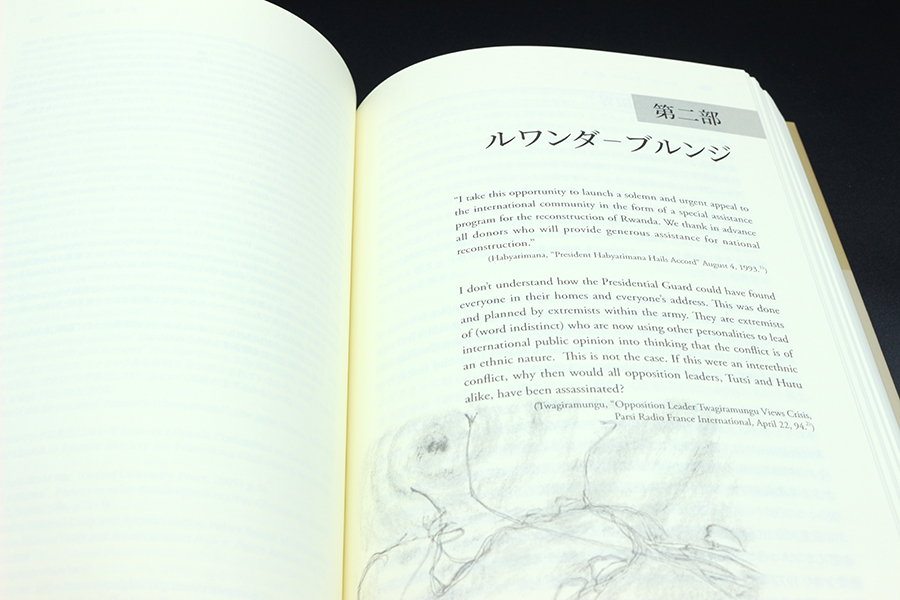 第二部
ルワンダ－ブルンジ
"I take this opportunity to launch a solemn and urgent appeal to
the international community in the form of a special assistance
program for the reconstruction of Rwanda. We thank in advance
all donors who will provide generous assistance for national
reconstruction."
(Habyarimana, "President Habyarimana Hails Accord" August 4, 1993.¹⁾)
I don't understand how the Presidential Guard could have found
everyone in their homes and everyone's address. This was done
and planned by extremists within the army. They are extremists
of (word indistinct) who are now using other personalities to lead
international public opinion into thinking that the conflict is of
an ethnic nature. This is not the case. If this were an interethnic
conflict, why then would all opposition leaders, Tutsi and Hutu
alike, have been assassinated?
(Twagiramungu, "Opposition Leader Twagiramungu Views Crisis,
Parsi Radio France International, April 22, 94.²⁾)